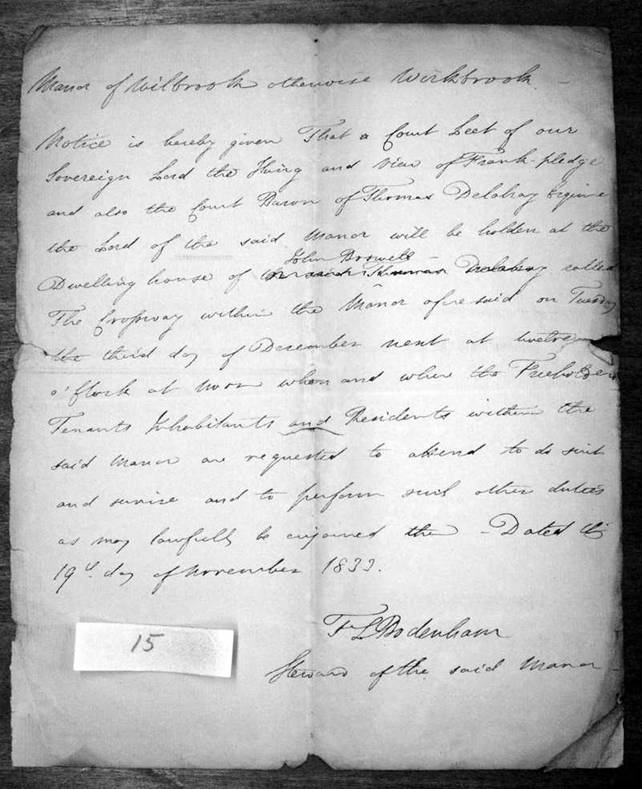 Manor of Wilbrook otherwise Workbrook –
Notice is hereby given That a Court Leet of our
Sovereign Lord the King and View of Frank pledge
and also the Court Baron of Thomas Delahay Esquire
the Lord of the said Manor will be holden at the
John Boswell –
Dwelling house of the said Thomas Delahay called
The Crossway within the Manor aforesaid on Tuesday
the third day of December next at twelve
o'Clock at Noon when and where the Freeholders
Tenants Inhabitants and Residents within the
said Manor are requested to attend to do suit
and service and to perform such other duties
as may lawfully be enjoined them – Dated the
19th day of November 1833.
F L Bodenham
Steward of the said Manor
15